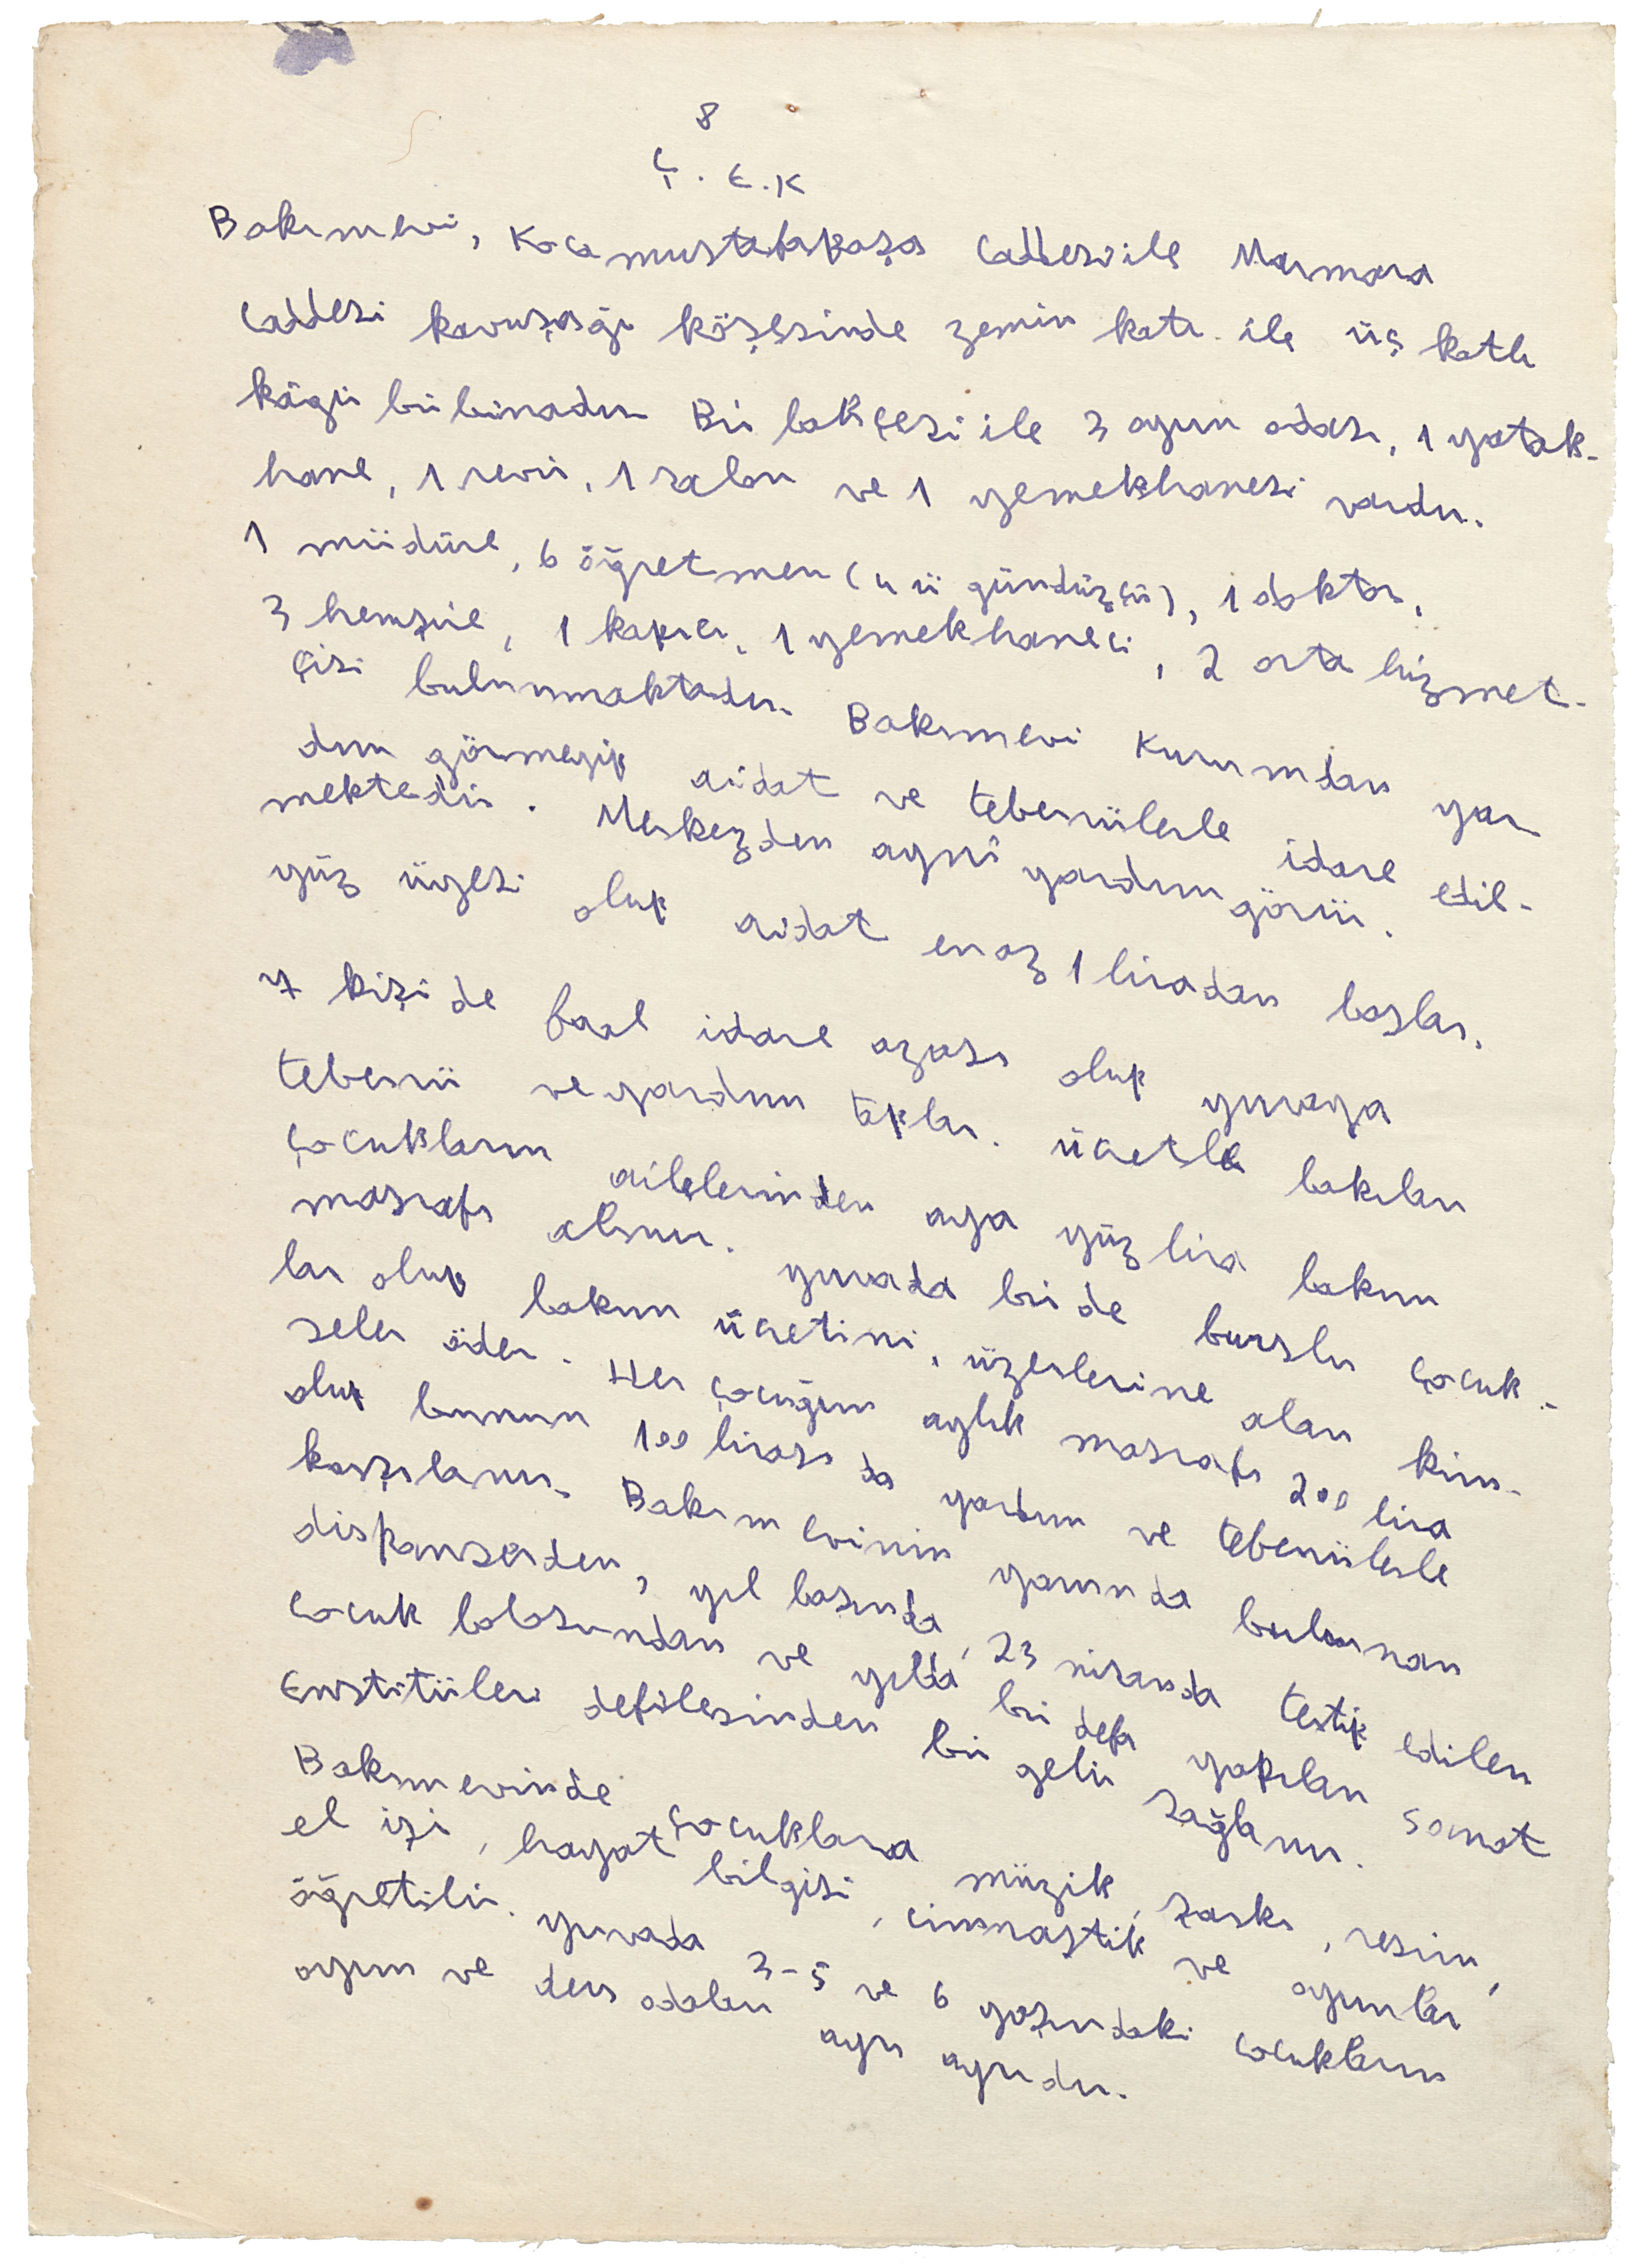 8
Ç. E. K
Bakımevi, Kocamustafapaşa Caddesi ile Marmara
Caddesi kavuşağı köşesinde zemin katı ile üç katlı
kâgir bir binadır. Bir bahçesi ile 3 oyun odası, 1 yatak-
hane, 1 revir, 1 salon ve 1 yemekhanesi vardır.
1 müdüre, 6 öğretmen (4 ü gündüzcü), 1 doktor,
3 hemşire, 1 kapıcı, 1 yemekhaneci, 2 orta hizmet-
çisi bulunmaktadır. Bakımevi Kurumdan yar
dım görmeyip aidat ve teberrülerle idare edil-
mektedir. Merkezden aynî yardım görür.
yüz üyesi olup aidat en az 1 liradan başlar.
7 kişi de faal idare azası olup yuvaya
teberrü ve yardım toplar. ücretle bakılan
çocukların ailelerinden aya yüz lira bakım
masrafı alınır. yuvada bir de burslu çocuk-
lar olup bakım ücretini, üzerlerine alan kim-
seler öder. Her çocuğun aylık masrafı 200 lira
olup bunun 100 lirası da yardım ve teberrülerle
karşılanır. Bakım evinin yanında bulunan
dispanserden, yıl başında, 23 nisanda tertip edilen
çocuk balosundan ve yılda bir defa yapılan Sanat
Enstitüleri defilesinden bir gelir sağlanır.
Bakımevinde çocuklara müzik, şarkı, resim,
el işi, hayat bilgisi, cimnastik ve oyunlar
öğretilir. yuvada 3-5 ve 6 yaşındaki çocukların
oyun ve ders odaları ayrı ayrıdır.